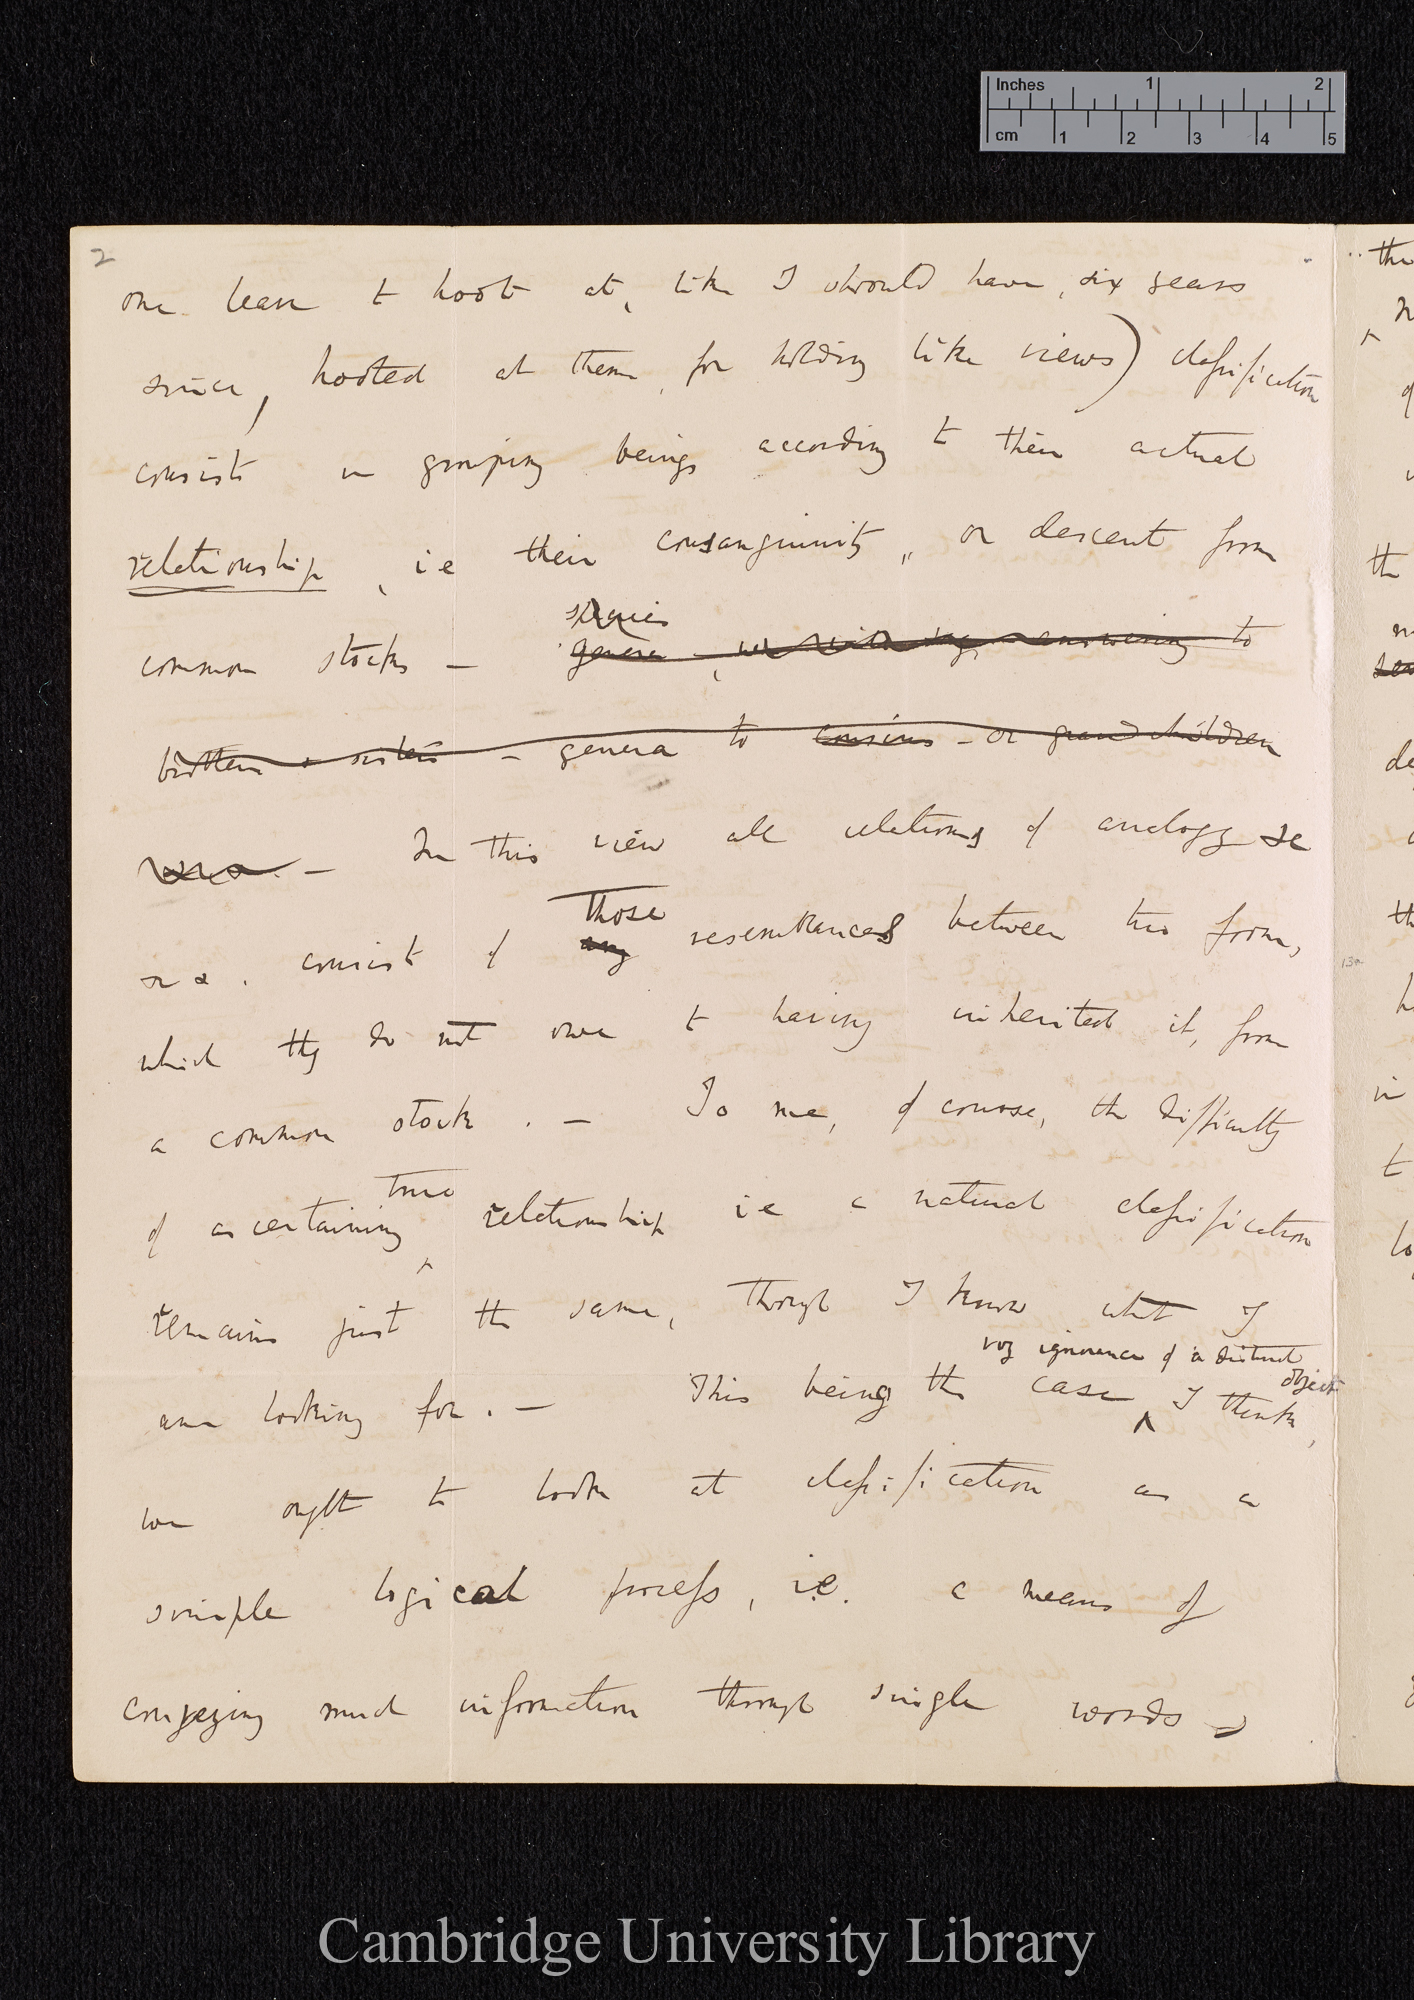 Inches 1 2
cm 1 2 3 4 5
2
one leave to hoot at, like I should have, six years
since, hooted at them, for holding like views) classification
consists in grouping beings according to their actual
relationship, ie their consanguinity, or descent from
species
common stocks — genera, answering to
brothers & sisters — genera to cousins — or grandchildren
— In this view all relations of analogy &c
those
&c &. consist of any resemblances between two forms,
which they do not owe to having inherited it, from
a common stock. — To me, of course, the difficulty
true
of ascertaining relationship ie a natural classification
remains just the same, though I know what I
viz ignorance of a distinct
object
am looking for. — This being the case I think,
we ought to look at classification as a
simple logical process, i.e. a means of
conveying much information through single words
Cambridge University Library